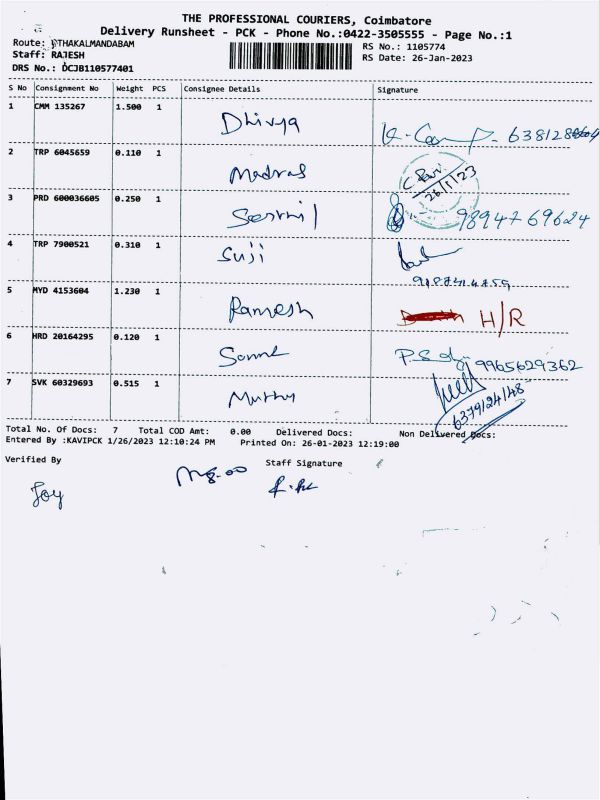 THE PROFESSIONAL COURIERS, Coimbatore
Delivery Runsheet - PCK - Phone No.:0422-3505555 - Page No.:1
Route: OTHAKALMANDABAM
RS No.: 1105774
Staff: RAJESH
RS Date: 26-Jan-2023
DRS No.: DCJB110577401
S No Consignment No Weight PCS Consignee Details Signature
1 CMM 135267 1.500 1 Dhivya
2 TRP 6045659 0.110 1 Madras
C Ravi
26/1/23
3 PRD 600036605 0.250 1 9894769624
4 TRP 7900521 0.310 1 Suji
5 MYD 4153604 1.230 1 Ramesh H/R
6 HRD 20164295 0.120 1 9965629362
7 SVK 60329693 0.515 1 Muthu
6379124148
Total No. Of Docs: 7 Total COD Amt: 0.00 Delivered Docs: Non Delivered Docs:
Entered By :KAVIPCK 1/26/2023 12:10:24 PM Printed On: 26-01-2023 12:19:00
Verified By Staff Signature
Joy